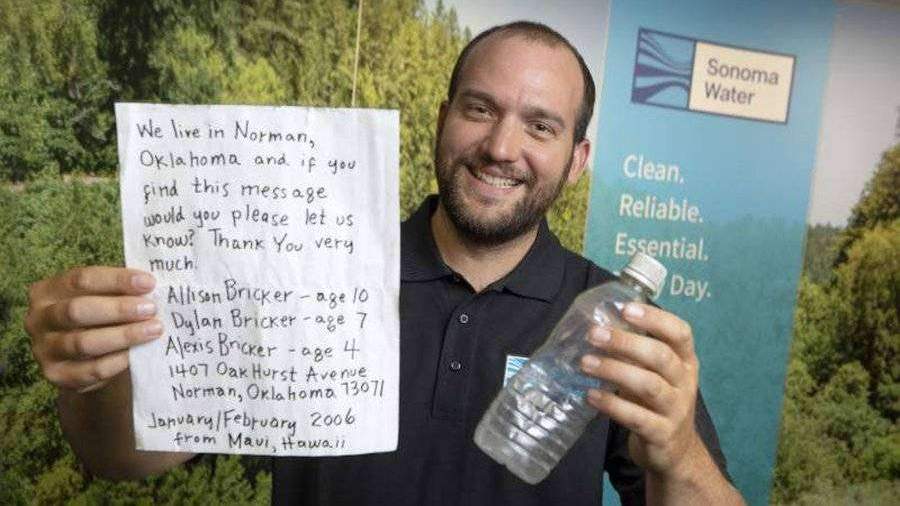 We live in Norman,
Oklahoma and if you
find this message
would you please let us
know? Thank You very
much.
Allison Bricker - age 10
Dylan Bricker - age 7
Alexis Bricker - age 4
1407 Oak Hurst Avenue
Norman, Oklahoma 73071
January/February 2006
from Maui, Hawaii
Sonoma
Water
Clean.
Reliable.
Essential.
Day.